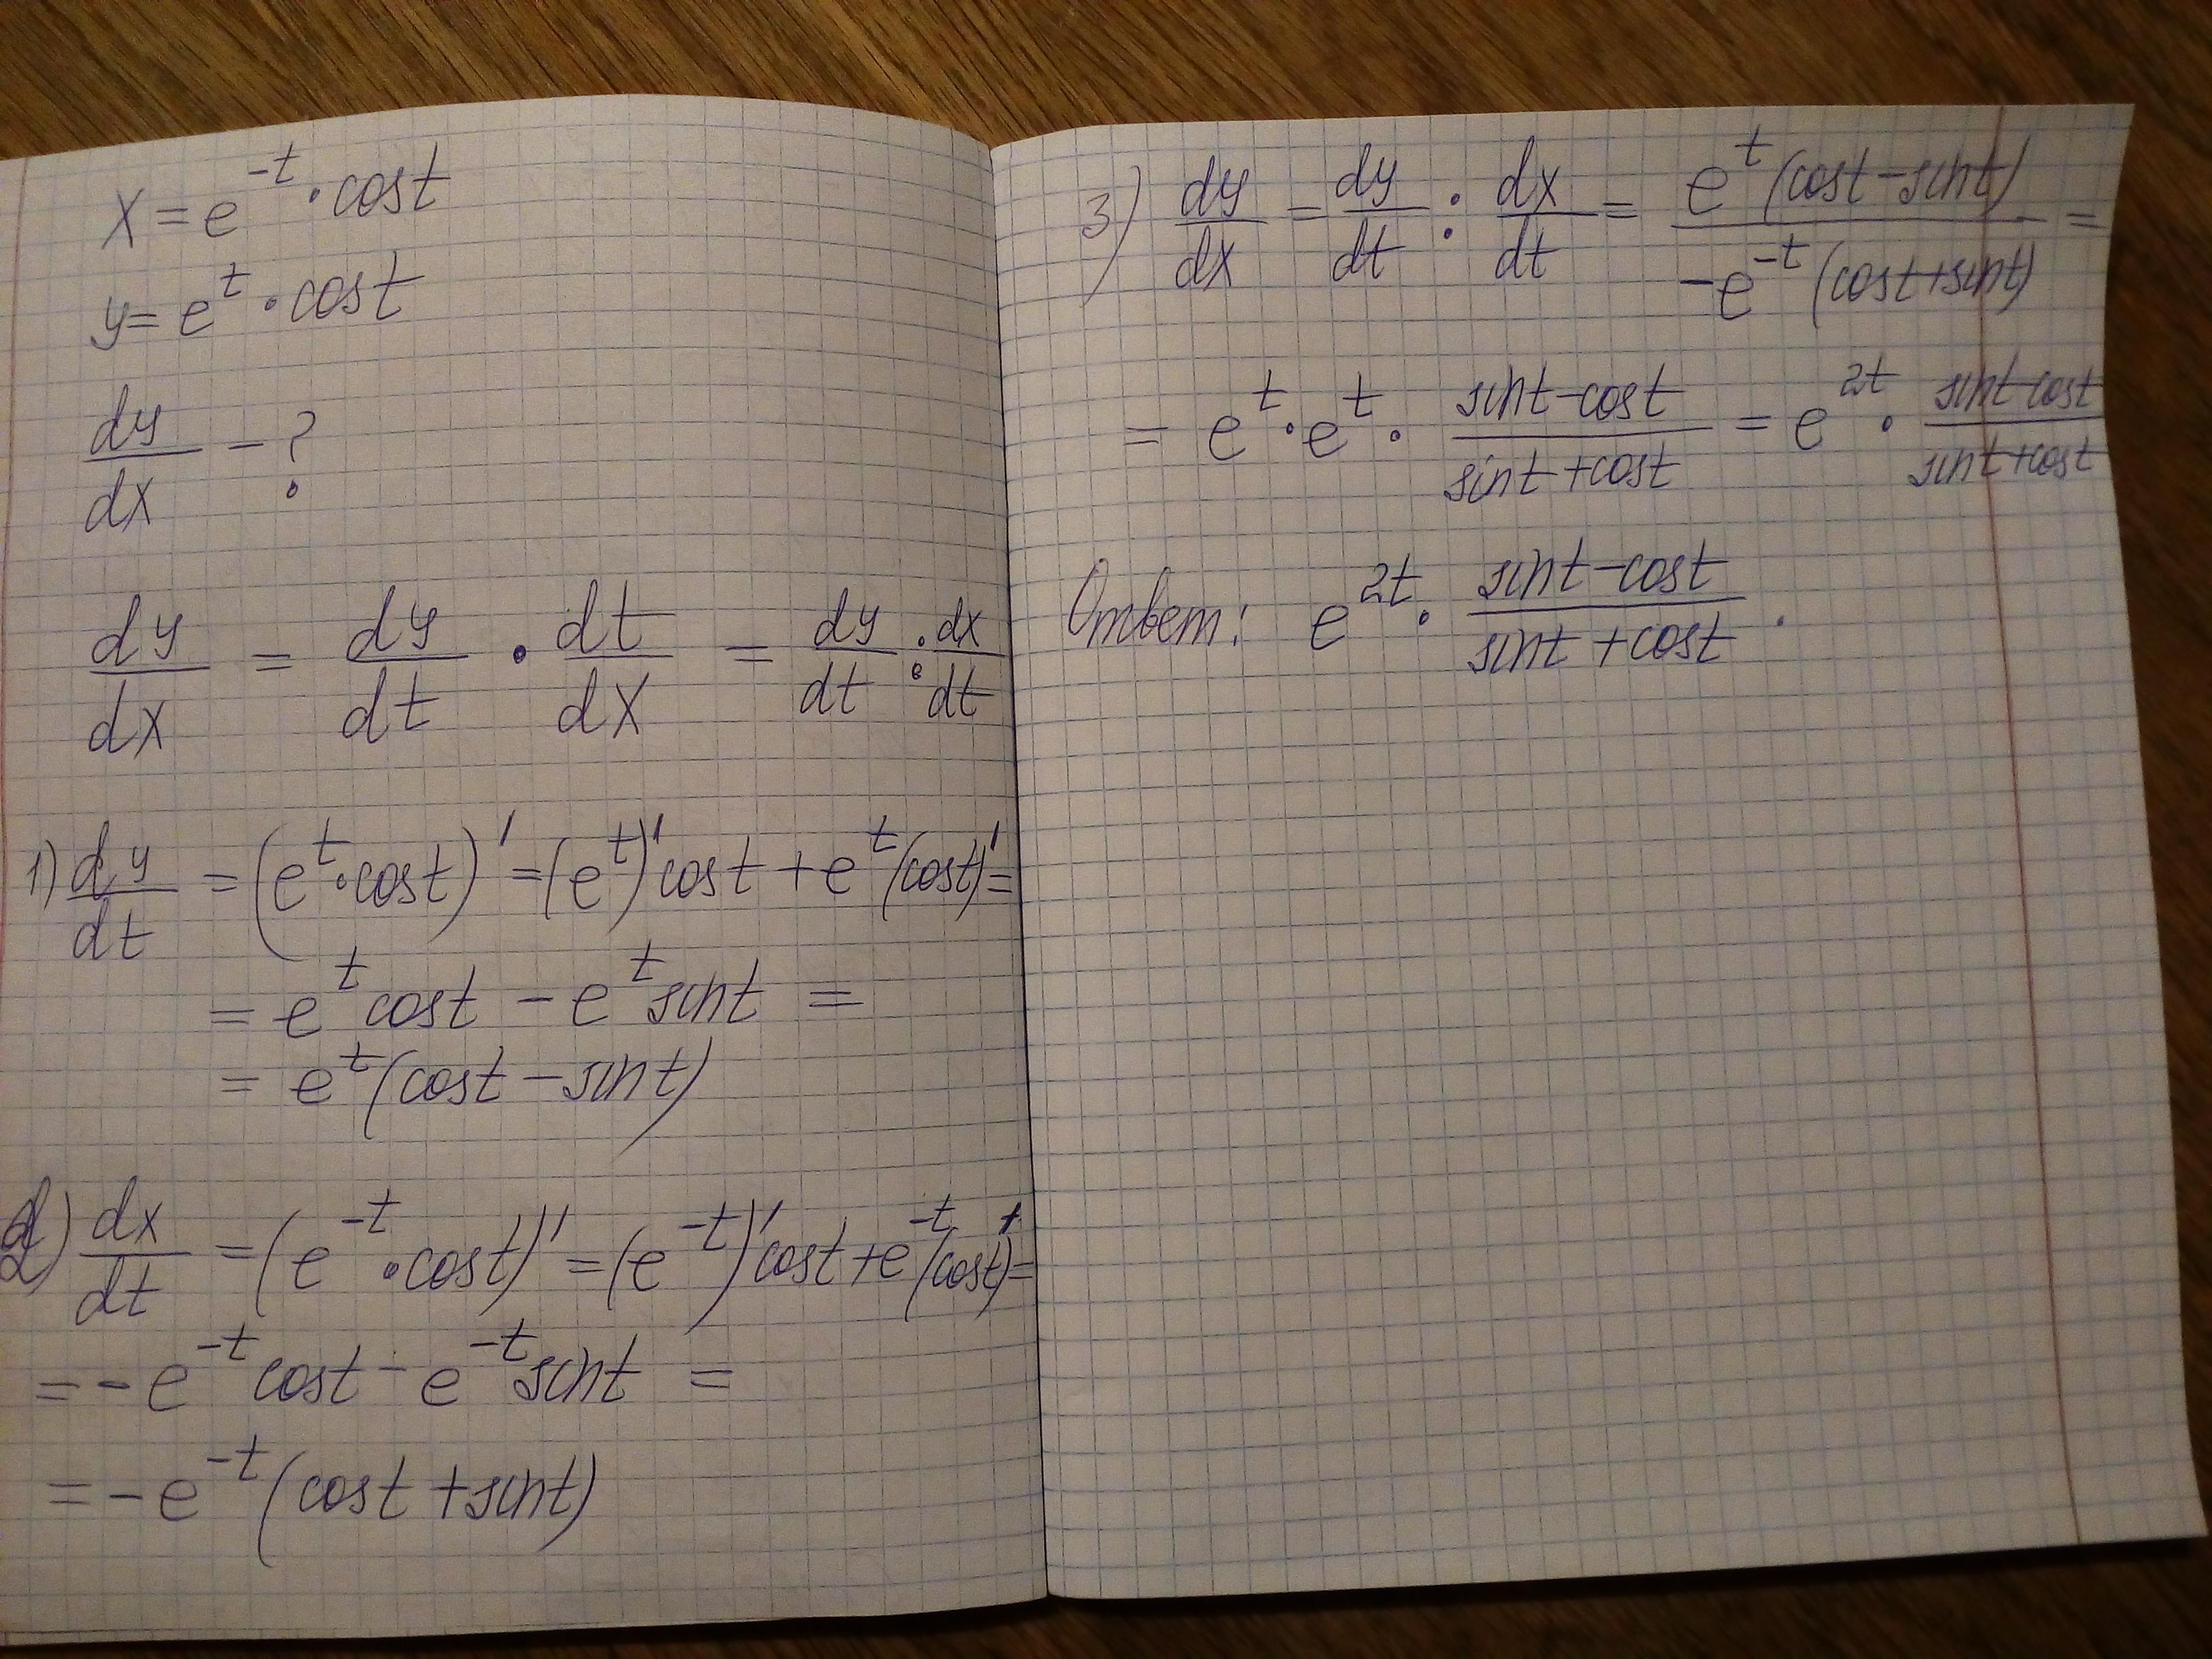 x = e^{-t} · cost
y = e^{t} · cost
dy/dx - ?
dy/dx = dy/dt · dt/dx = dy/dt : dx/dt
1) dy/dt = (e^{t} · cost)' = (e^{t})' cost + e^{t} (cost)' =
= e^{t} cost - e^{t} sint =
= e^{t} (cost - sint)
2) dx/dt = (e^{-t} · cost)' = (e^{-t})' cost + e^{-t} (cost)' =
= - e^{-t} cost - e^{-t} sint =
= - e^{-t} (cost + sint)
3) dy/dx = dy/dt : dx/dt = e^{t} (cost - sint) / -e^{-t} (cost + sint) =
= e^{t} · e^{t} · (sint - cost)/(sint + cost) = e^{2t} · (sint - cost)/(sint + cost)
Ответ: e^{2t} · (sint - cost)/(sint + cost) .